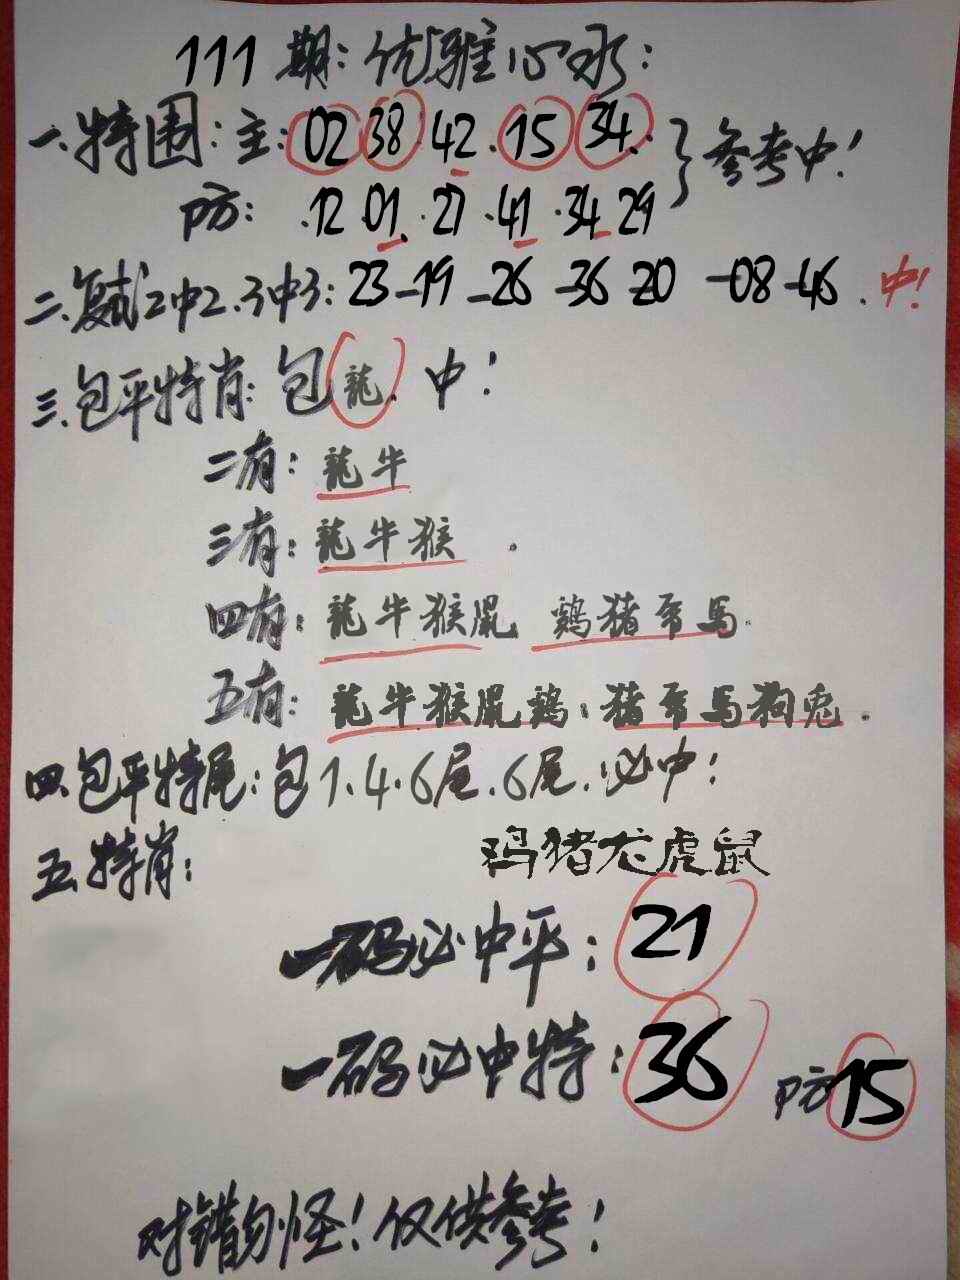 111期:优雅心水:
一.特围:主:02 38 42.15 34. }参考中!
防:.12 01.27.41.34 29
二.复式2中2.3中3:23-19-26-36 20-08-46.中!
三.包平特肖:包龍.中!
二有:龍牛
三有:龍牛猴.
四有:龍牛猴鼠 鸡猪羊馬
五有:龍牛猴鼠鸡:猪羊馬狗兔.
四.包平特尾:包1.4.6尾.6尾.必中!
五.特肖: 鸡猪龙虎鼠
一码必中平:21
一码必中特:36 防15
对错勿怪!仅供参考!